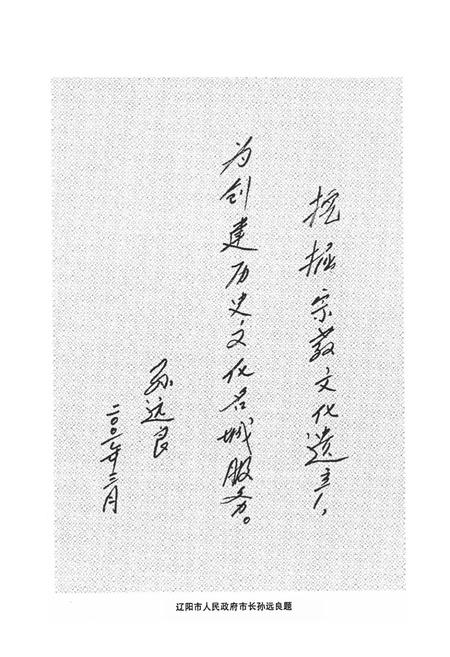 挖掘宗教文化遗产，
为创建历史文化名城服务。
孙远良
二〇〇年三月
辽阳市人民政府市长孙远良题